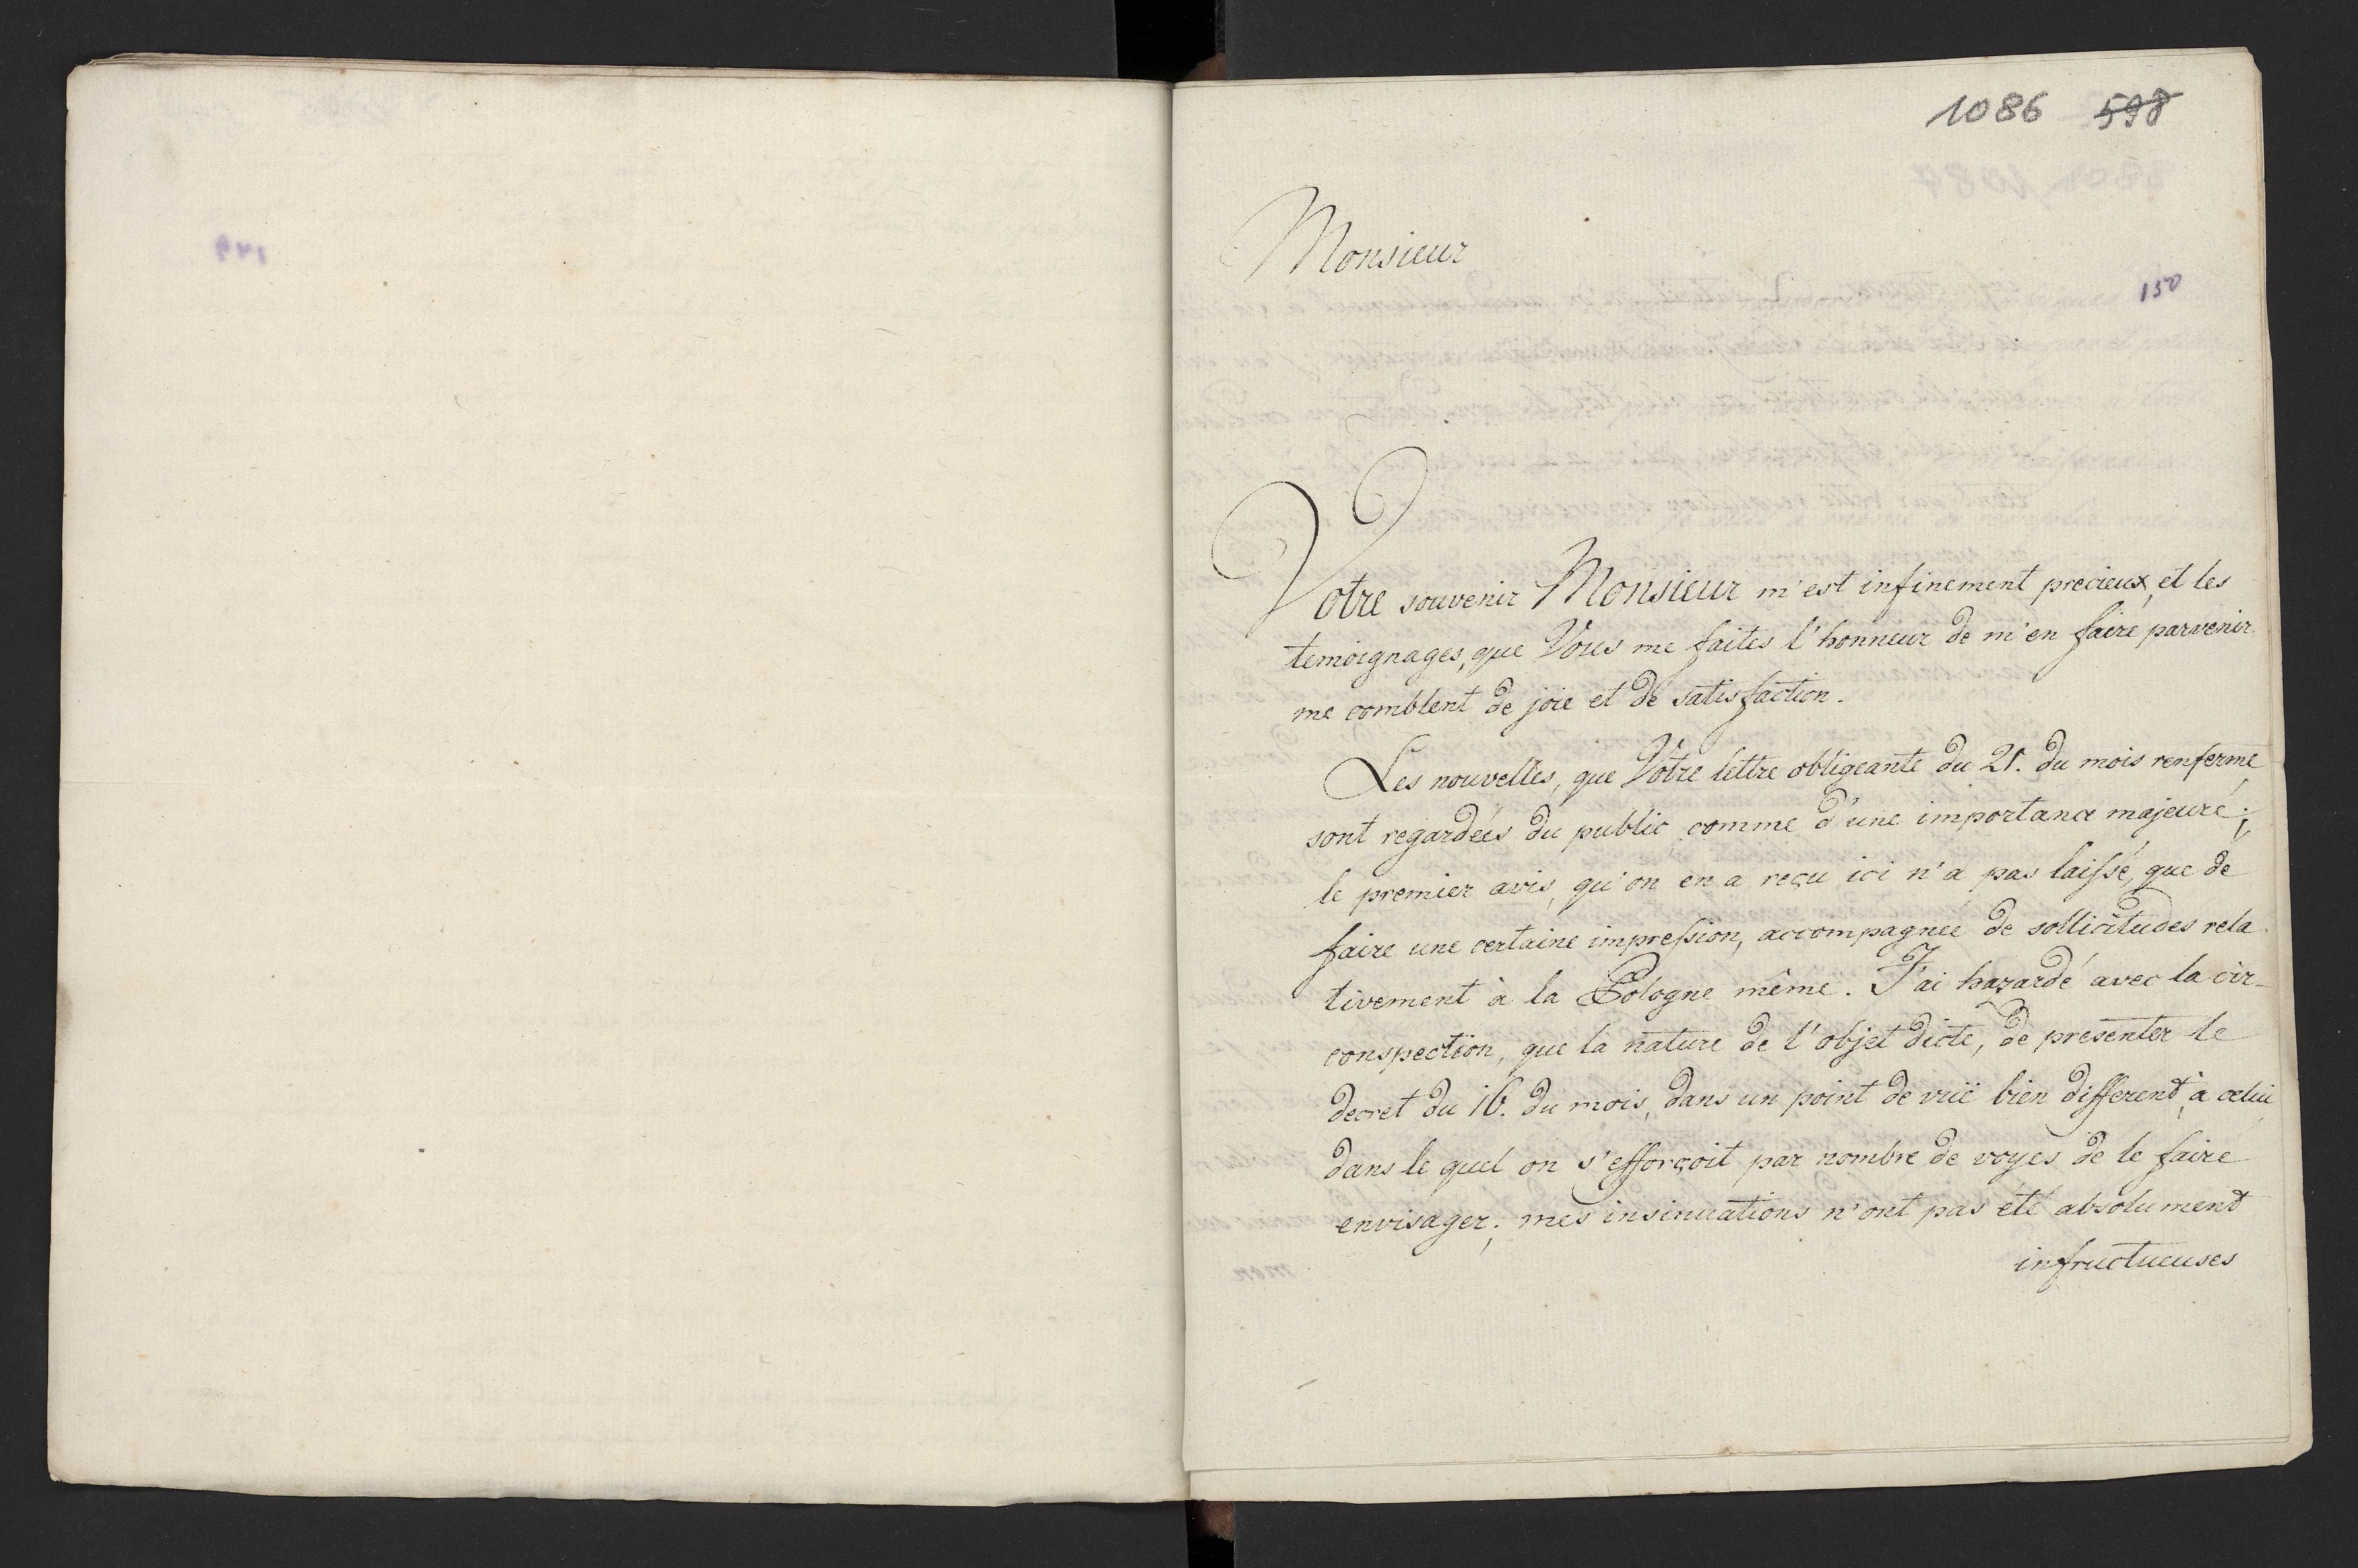 1086 598
Monsieur
150
Votre souvenir Monsieur m'est infinement precieux, et les
temoignages, que Vous me faites l'honneur de m'en faire parvenir
me comblent de joie et de satisfaction.
Les nouvelles, que Votre lettre obligeante du 21. du mois renferme
sont regardées du public comme d'une importance majeure;
le premier avis, qu'on en a reçu ici n'a pas laissé, que de
faire une certaine impression, accompagnée de sollicitudes rela-
tivement à la Pologne même. J'ai hazardé avec la cir-
conspection, que la nature de l'objet dicte, de presenter le
decret du 16. du mois, dans un point de vuë bien different, à celui
dans le quel on s'efforçoit par nombre de voyes de le faire
envisager; mes insinuations n'ont pas été absolument
infructueuses